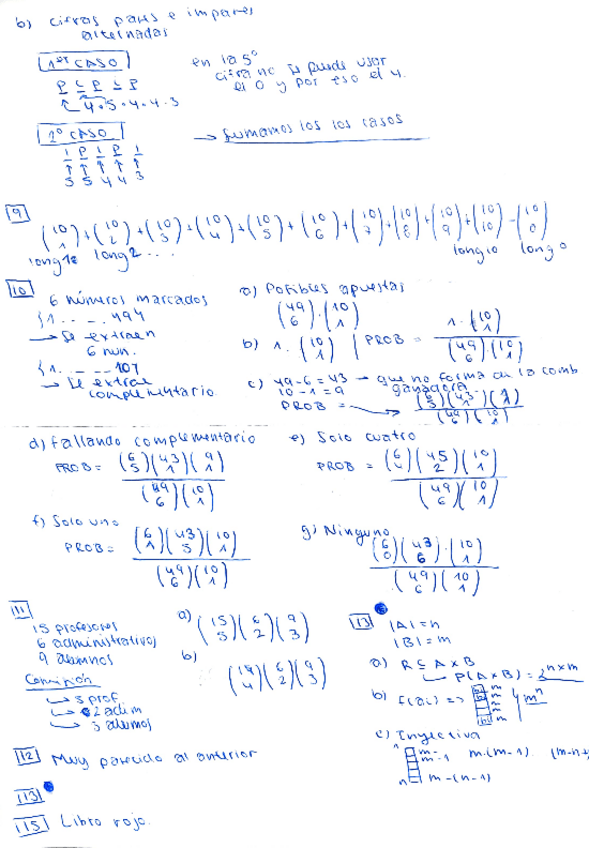 b) cifras pares e impares
alternadas
1er CASO
P I P I P
4·5·4·4·3
en la 5º
cifra no se puede usar
el 0 y por eso el 4.
2º CASO
I P I P I
5 5 4 4 3
→ Sumamos los los casos
9
(10 1)+(10 2)+(10 3)+(10 4)+(10 5)+(10 6)+(10 7)+(10 8)+(10 9)+(10 10)-(10 0)
long 1 long 2 ... long 10 long 0
10
6 números marcados
{1.. - .. 49}
→ Se extraen
6 num.
{1. - - - 10}
→ Se extrae
complementario
a) Posibles apuestas
(49 6)·(10 1)
b) 1·(10 1) | PROB = 1·(10 1) / (49 6)·(10 1)
c) 49-6=43 → que no forma en la comb
10-1=9 ganadora
PROB = (6 5)(43 1)(1 1) / (49 6)(10 1)
d) Fallando complementario
PROB = (6 5)(43 1)(9 1) / (49 6)(10 1)
e) Solo cuatro
PROB = (6 4)(45 2)(10 1) / (49 6)(10 1)
f) Solo uno
PROB = (6 1)(43 5)(10 1) / (49 6)(10 1)
g) Ninguno
(6 0)(43 6)·(10 1) / (49 6)(10 1)
11
15 profesores
6 administrativos
9 alumnos
Comisión
→ 5 prof
→ 2 adim
→ 3 alumos
a) (15 5)(6 2)(9 3)
b) (14 4)(6 2)(9 3)
12 Muy parecido al anterior
13
15 Libro rojo.
13
|A| = n
|B| = m
a) R ⊆ A x B
→ P(A x B) = 2^n x m
b) f(ai) =>
m
m^n
c) Inyectiva
1 m
m-1 m·(m-1) (m-n+
n m-(n-1)